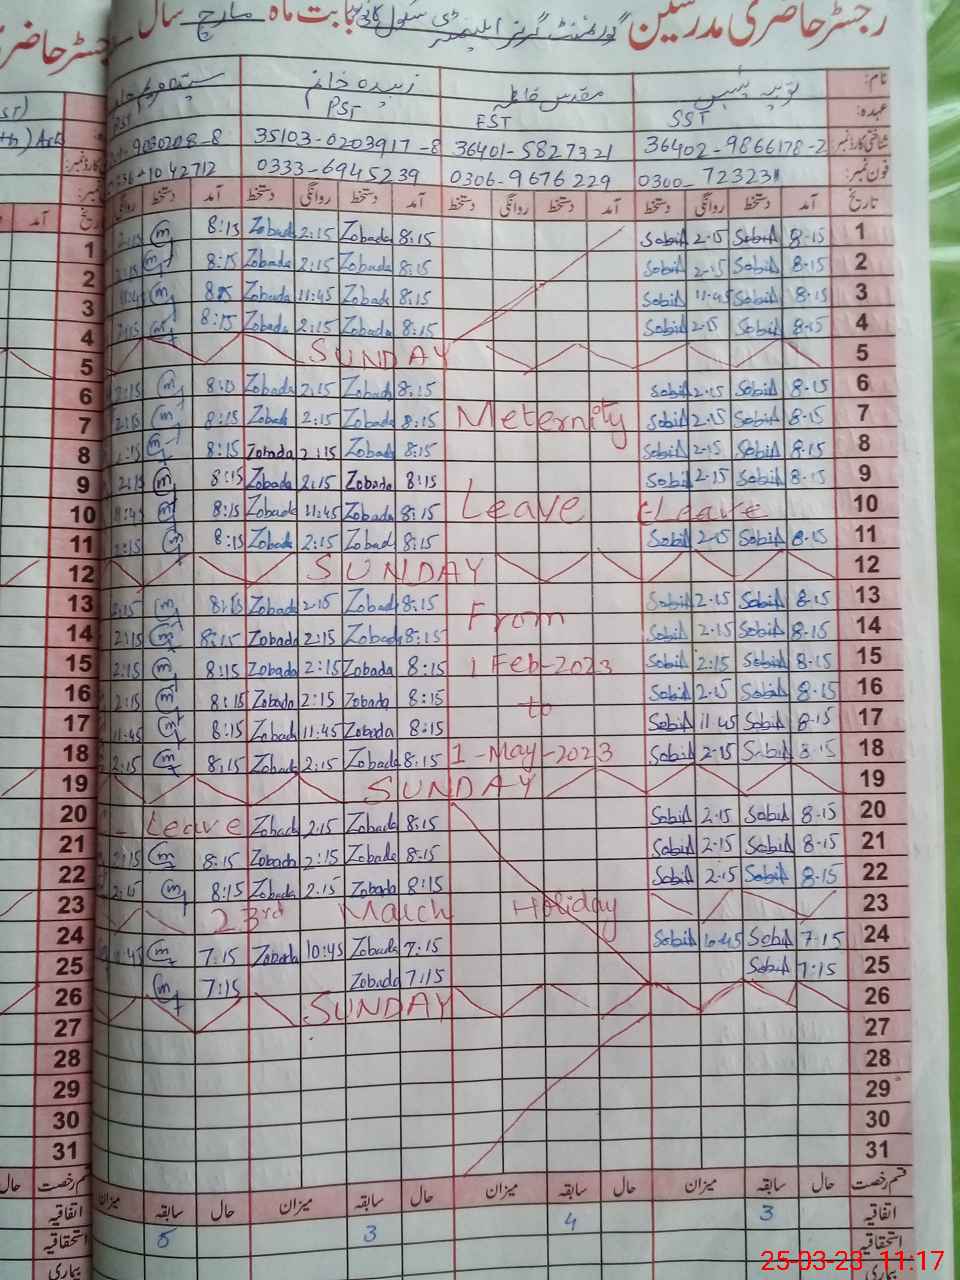 رجسٹر حاضری مدرسین گورنمنٹ گرلز ایلیمنٹری سکول بابت ماہ مارچ سال
نام: ثوبیہ مقدس فاطمہ زبیدہ خانم سیدہ مریم
عہدہ: SST EST PST PST
شناختی کارڈ نمبر: 36402-9866178-2 36401-5827321 35103-0203917-8
فون نمبر: 0306-9676229 0333-6945239
تاریخ آمد دستخط روانگی دستخط آمد دستخط روانگی دستخط آمد دستخط روانگی دستخط آمد دستخط روانگی
1 8-15 Sobia 2-15 Sobia 8:15 Zobada 2:15 Zobada 8:15 m 2:15
2 8-15 Sobia 2-15 Sobia 8:15 Zobada 2:15 Zobada 8:15 m 2:15
3 8-15 Sobia 11-45 Sobia 8:15 Zobada 11:45 Zobada 8:15 m 11:45
4 8-15 Sobia 2-15 Sobia 8:15 Zobada 2:15 Zobada 8:15 m 2:15
5 SUNDAY
6 8-15 Sobia 2-15 Sobia 8:15 Zobada 2:15 Zobada 8:15 m 2:15
7 8-15 Sobia 2-15 Sobia Meternity 8:15 Zobada 2:15 Zobada 8:15 m 2:15
8 8-15 Sobia 2-15 Sobia 8:15 Zobada 2:15 Zobada 8:15 m 2:15
9 8-15 Sobia 2-15 Sobia 8:15 Zobada 2:15 Zobada 8:15 m 2:15
10 C-Leave Leave 8:15 Zobada 11:45 Zobada 8:15 m 11:45
11 8-15 Sobia 2-15 Sobia 8:15 Zobada 2:15 Zobada 8:15 m 2:15
12 SUNDAY
13 8-15 Sobia 2-15 Sobia From 8:15 Zobada 2:15 Zobada 8:15 m 2:15
14 8-15 Sobia 2-15 Sobia 8:15 Zobada 2:15 Zobada 8:15 m 2:15
15 8-15 Sobia 2:15 Sobia 1 Feb-2023 8:15 Zobada 2:15 Zobada 8:15 m 2:15
16 8-15 Sobia 2-15 Sobia to 8:15 Zobada 2:15 Zobada 8:15 m 2:15
17 8-15 Sobia 11-45 Sobia 8:15 Zobada 11:45 Zobada 8:15 m 11:45
18 8-15 Sobia 2-15 Sobia 1-May-2023 8:15 Zobada 2:15 Zobada 8:15 m 2:15
19 SUNDAY
20 8-15 Sobia 2-15 Sobia 8:15 Zobada 2:15 Zobada Leave
21 8-15 Sobia 2-15 Sobia 8:15 Zobada 2:15 Zobada 8:15 m 2:15
22 8-15 Sobia 2-15 Sobia 8:15 Zobada 2:15 Zobada 8:15 m 2:15
23 23rd March Holiday
24 7:15 Sobia Sobia 7:15 Zobada 10:45 Zobada 7:15 m
25 7:15 Sobia 7:15 Zobada 7:15 m
26 SUNDAY
27
28
29
30
31
قسم رخصت حال سابقہ میزان حال سابقہ میزان حال سابقہ میزان حال سابقہ میزان
اتفاقیہ 3 4 3 5
استحقاقیہ
بیماری
25-03-23 11:17